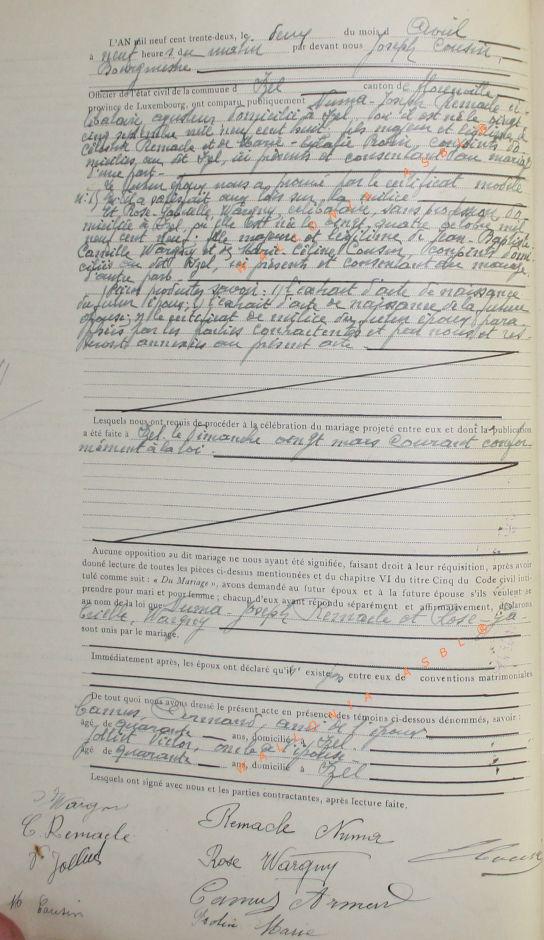 L'AN mil neuf cent trente-deux, le deux du mois d'Avril
à neuf heures du matin par devant nous Joseph Cousin,
Bourgmestre
Officier de l'état civil de la commune d'Izel canton de
province de Luxembourg, ont comparu publiquement Numa-Joseph Remacle cé-
libataire, domicilié à Izel, où il est né le vingt
cinq septembre mil neuf cent huit, fils majeur et légitime de
Célestin Remacle et de Marie- conjoints do-
miciliés au dit Izel, ici présents et consentant au mariage
d'une part.
Le futur époux nous a prouvé par le certificat modèle
qu'il a satisfait aux lois sur la milice
Et Rose-Gabrielle Wargny, célibataire, sans profession do-
miciliée à Izel, où elle est née le vingt quatre octobre mil
neuf cent fille majeure et légitime de Jean-Baptiste
Camille Wargny et de Marie-Céline conjoints domi-
ciliés au dit Izel, ici présents et consentant au mariage,
d'autre part.
Pièces produites savoir: 1) l'extrait d'acte de naissance
du futur époux; 2) l'extrait d'acte de naissance de la future
épouse; 3) le certificat de milice du futur époux, para-
phées par les parties contractantes et par nous et res-
teront annexées au présent acte
Lesquels nous ont requis de procéder à la célébration du mariage projeté entre eux et dont la publication
a été faite à Izel le Dimanche vingt mars courant confor-
mément à la loi.
Aucune opposition au dit mariage ne nous ayant été signifiée, faisant droit à leur réquisition, après avoir
donné lecture de toutes les pièces ci-dessus mentionnées et du chapitre VI du titre Cinq du Code civil inti-
tulé comme suit : « Du Mariage », avons demandé au futur époux et à la future épouse s'ils veulent se
prendre pour mari et pour femme ; chacun d'eux ayant répondu séparément et affirmativement, déclarons
au nom de la loi que Numa-Joseph Remacle et Rose-Ga-
brielle Wargny
sont unis par le mariage.
Immédiatement après, les époux ont déclaré qu'il n'existe pas entre eux de conventions matrimoniales
De tout quoi nous avons dressé le présent acte en présence des témoins ci-dessous dénommés, savoir :
Camus Armand, ami de l'époux
âgé de quarante ans, domicilié à Izel
Victor, oncle de l'épouse
âgé de quarante ans, domicilié à Izel
Lesquels ont signé avec nous et les parties contractantes, après lecture faite.
Wargny
C. Remacle Remacle Numa
V. Rose Wargny
Camus Armand
Cousin Marie
WALLONIA ASBL ®
WALLONIA ASBL ®